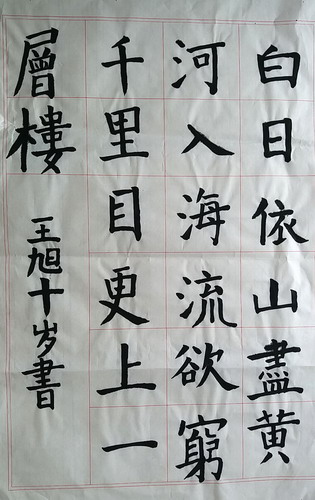 白日依山盡黄
河入海流欲窮
千里目更上一
層樓
王旭十岁書